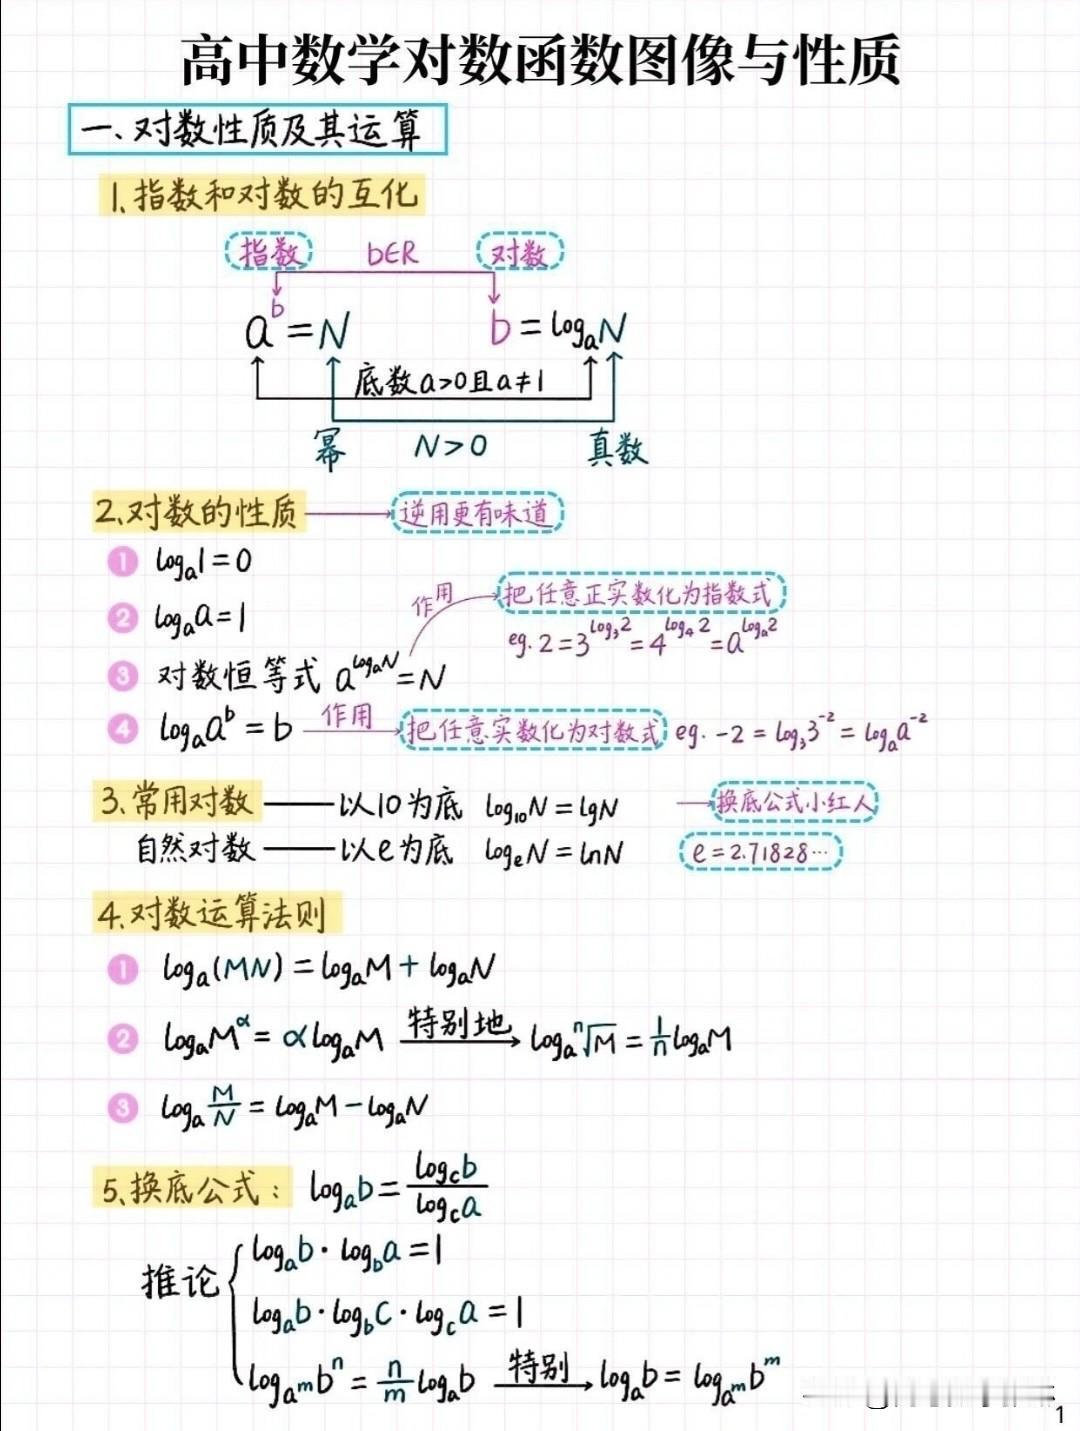 高中数学对数函数图像与性质
一、对数性质及其运算
1、指数和对数的互化
指数 b∈R 对数
a^b=N b=log_a N
底数a>0且a≠1
幂 N>0 真数
2、对数的性质 → 逆用更有味道
① log_a 1=0
② log_a a=1
作用 把任意正实数化为指数式
eg. 2=3^{log_3 2}=4^{log_4 2}=a^{log_a 2}
③ 对数恒等式 a^{log_a N}=N
④ log_a a^b=b 作用 把任意实数化为对数式 eg. -2=log_3 3^{-2}=log_a a^{-2}
3、常用对数——以10为底 log_10 N=lgN → 换底公式小红人
自然对数——以e为底 log_e N=lnN e=2.71828…
4、对数运算法则
① log_a(MN)=log_a M+log_a N
② log_a M^α=αlog_a M 特别地→ log_a ⁿ√M=1/n log_a M
③ log_a M/N=log_a M-log_a N
5、换底公式: log_a b=log_c b/log_c a
推论 { log_a b·log_b a=1
log_a b·log_b c·log_c a=1
log_{a^m} b^n=n/m log_a b 特别→ log_a b=log_{a^m} b^m
1